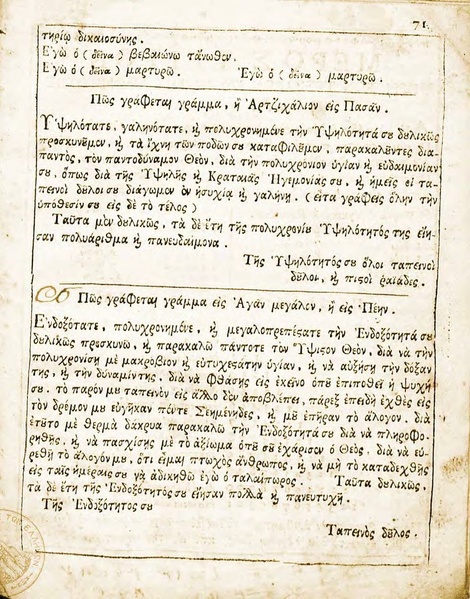 71
τηρίῳ δικαιοσύνης.
Ἐγὼ ὁ (δεῖνα) βεβαιώνω τἄνωθεν.
Ἐγὼ ὁ (δεῖνα) μαρτυρῶ. Ἐγὼ ὁ (δεῖνα) μαρτυρῶ.
Πῶς γράφεται γράμμα, ἢ Ἀρτζιχάλιον εἰς Πασᾶν.
Ὑψηλότατε, γαληνότατε, ϗ πολυχρονημένε τὴν Ὑψηλότητά σȣ δȣλικῶς
προσκυνȣ̃μεν, ϗ τὰ ἴχνη τῶν ποδῶν σȣ καταφιλȣ̃μεν, παρακαλȣ̃ντες δια-
παντὸς, τὸν παντοδύναμον Θεὸν, διὰ τὴν πολυχρόνιον ὑγίαν ϗ εὐδαιμονίαν
σȣ, ὅπως διὰ τῆς Ὑψηλῆς ϗ Κραταιᾶς Ἡγεμονίας σȣ, ϗ ἡμεῖς οἱ τα-
πεινοὶ δȣ̃λοι σȣ διάγωμεν ἐν ἡσυχίᾳ ϗ γαλήνῃ. (εἶτα γράφεις ὅλην τὴν
ὑπόθεσίν σȣ εἰς δὲ τὸ τέλος)
Ταῦτα μὲν δȣλικῶς, τὰ δὲ ἔτη τῆς πολυχρονίȣ Ὑψηλότητός της εἴη-
σαν πολυάριθμα ϗ πανευδαίμονα.
Τῆς Ὑψηλότητός σȣ ὅλοι ταπεινοὶ
δȣ̃λοι, ϗ πιϛοὶ ῥαϊάδες.
Πῶς γράφεται γράμμα εἰς Ἀγὰν μεγάλον, ἢ εἰς Πέην.
Ἐνδοξότατε, πολυχρονημένε, ϗ μεγαλοπρεπέϛατε τὴν Ἐνδοξότητά σȣ
δȣλικῶς προσκυνῶ, ϗ παρακαλῶ πάντοτε τὸν Ὕψιϛον Θεὸν, διὰ νὰ τὴν
πολυχρονίσῃ μὲ μακρόβιον ϗ εὐτυχεϛάτην ὑγίαν, ϗ νὰ αὐξήσῃ τὴν δόξαν
της, ϗ τὴν δύναμίντης, διὰ νὰ φθάσῃς εἰς ἐκεῖνο ὁπȣ̃ ἐπιποθεῖ ἡ ψυχή
σȣ. τὸ παρόν μȣ ταπεινὸν εἰς ἄλλο δὲν ἀποβλέπει, πάρεξ ἐπειδὴ ἐχθὲς εἰς
τὸν δρόμον μȣ εὐγῆκαν πέντε Σεημένηδες, ϗ μȣ̃ ἐπῆραν τὸ ἄλογον, διὰ
ἐτȣ̃το μὲ θερμὰ δάκρυα παρακαλῶ τὴν Ἐνδοξότητά σȣ διὰ νὰ πληροφο-
ρηθῇς, ϗ νὰ πασχίσῃς μὲ τὸ ἀξίωμα ὁπȣ̃ σȣ̃ ἐχάρισεν ὁ Θεὸς, διὰ νὰ εὑ-
ρεθῇ τὸ ἄλογόνμȣ, ὅτι εἶμαι πτωχὸς ἄνθρωπος, ϗ νὰ μὴ τὸ καταδεχθῇς
εἰς ταῖς ἡμέραις σȣ νὰ ἀδικηθῶ ἐγὼ ὁ ταλαίπωρος. Ταῦτα δȣλικῶς,
τὰ δὲ ἔτη τῆς Ἐνδοξότητός σȣ εἴησαν πολλὰ ϗ πανευτυχῆ.
Τῆς Ἐνδοξότητος σȣ
Ταπεινὸς δȣ̃λος.